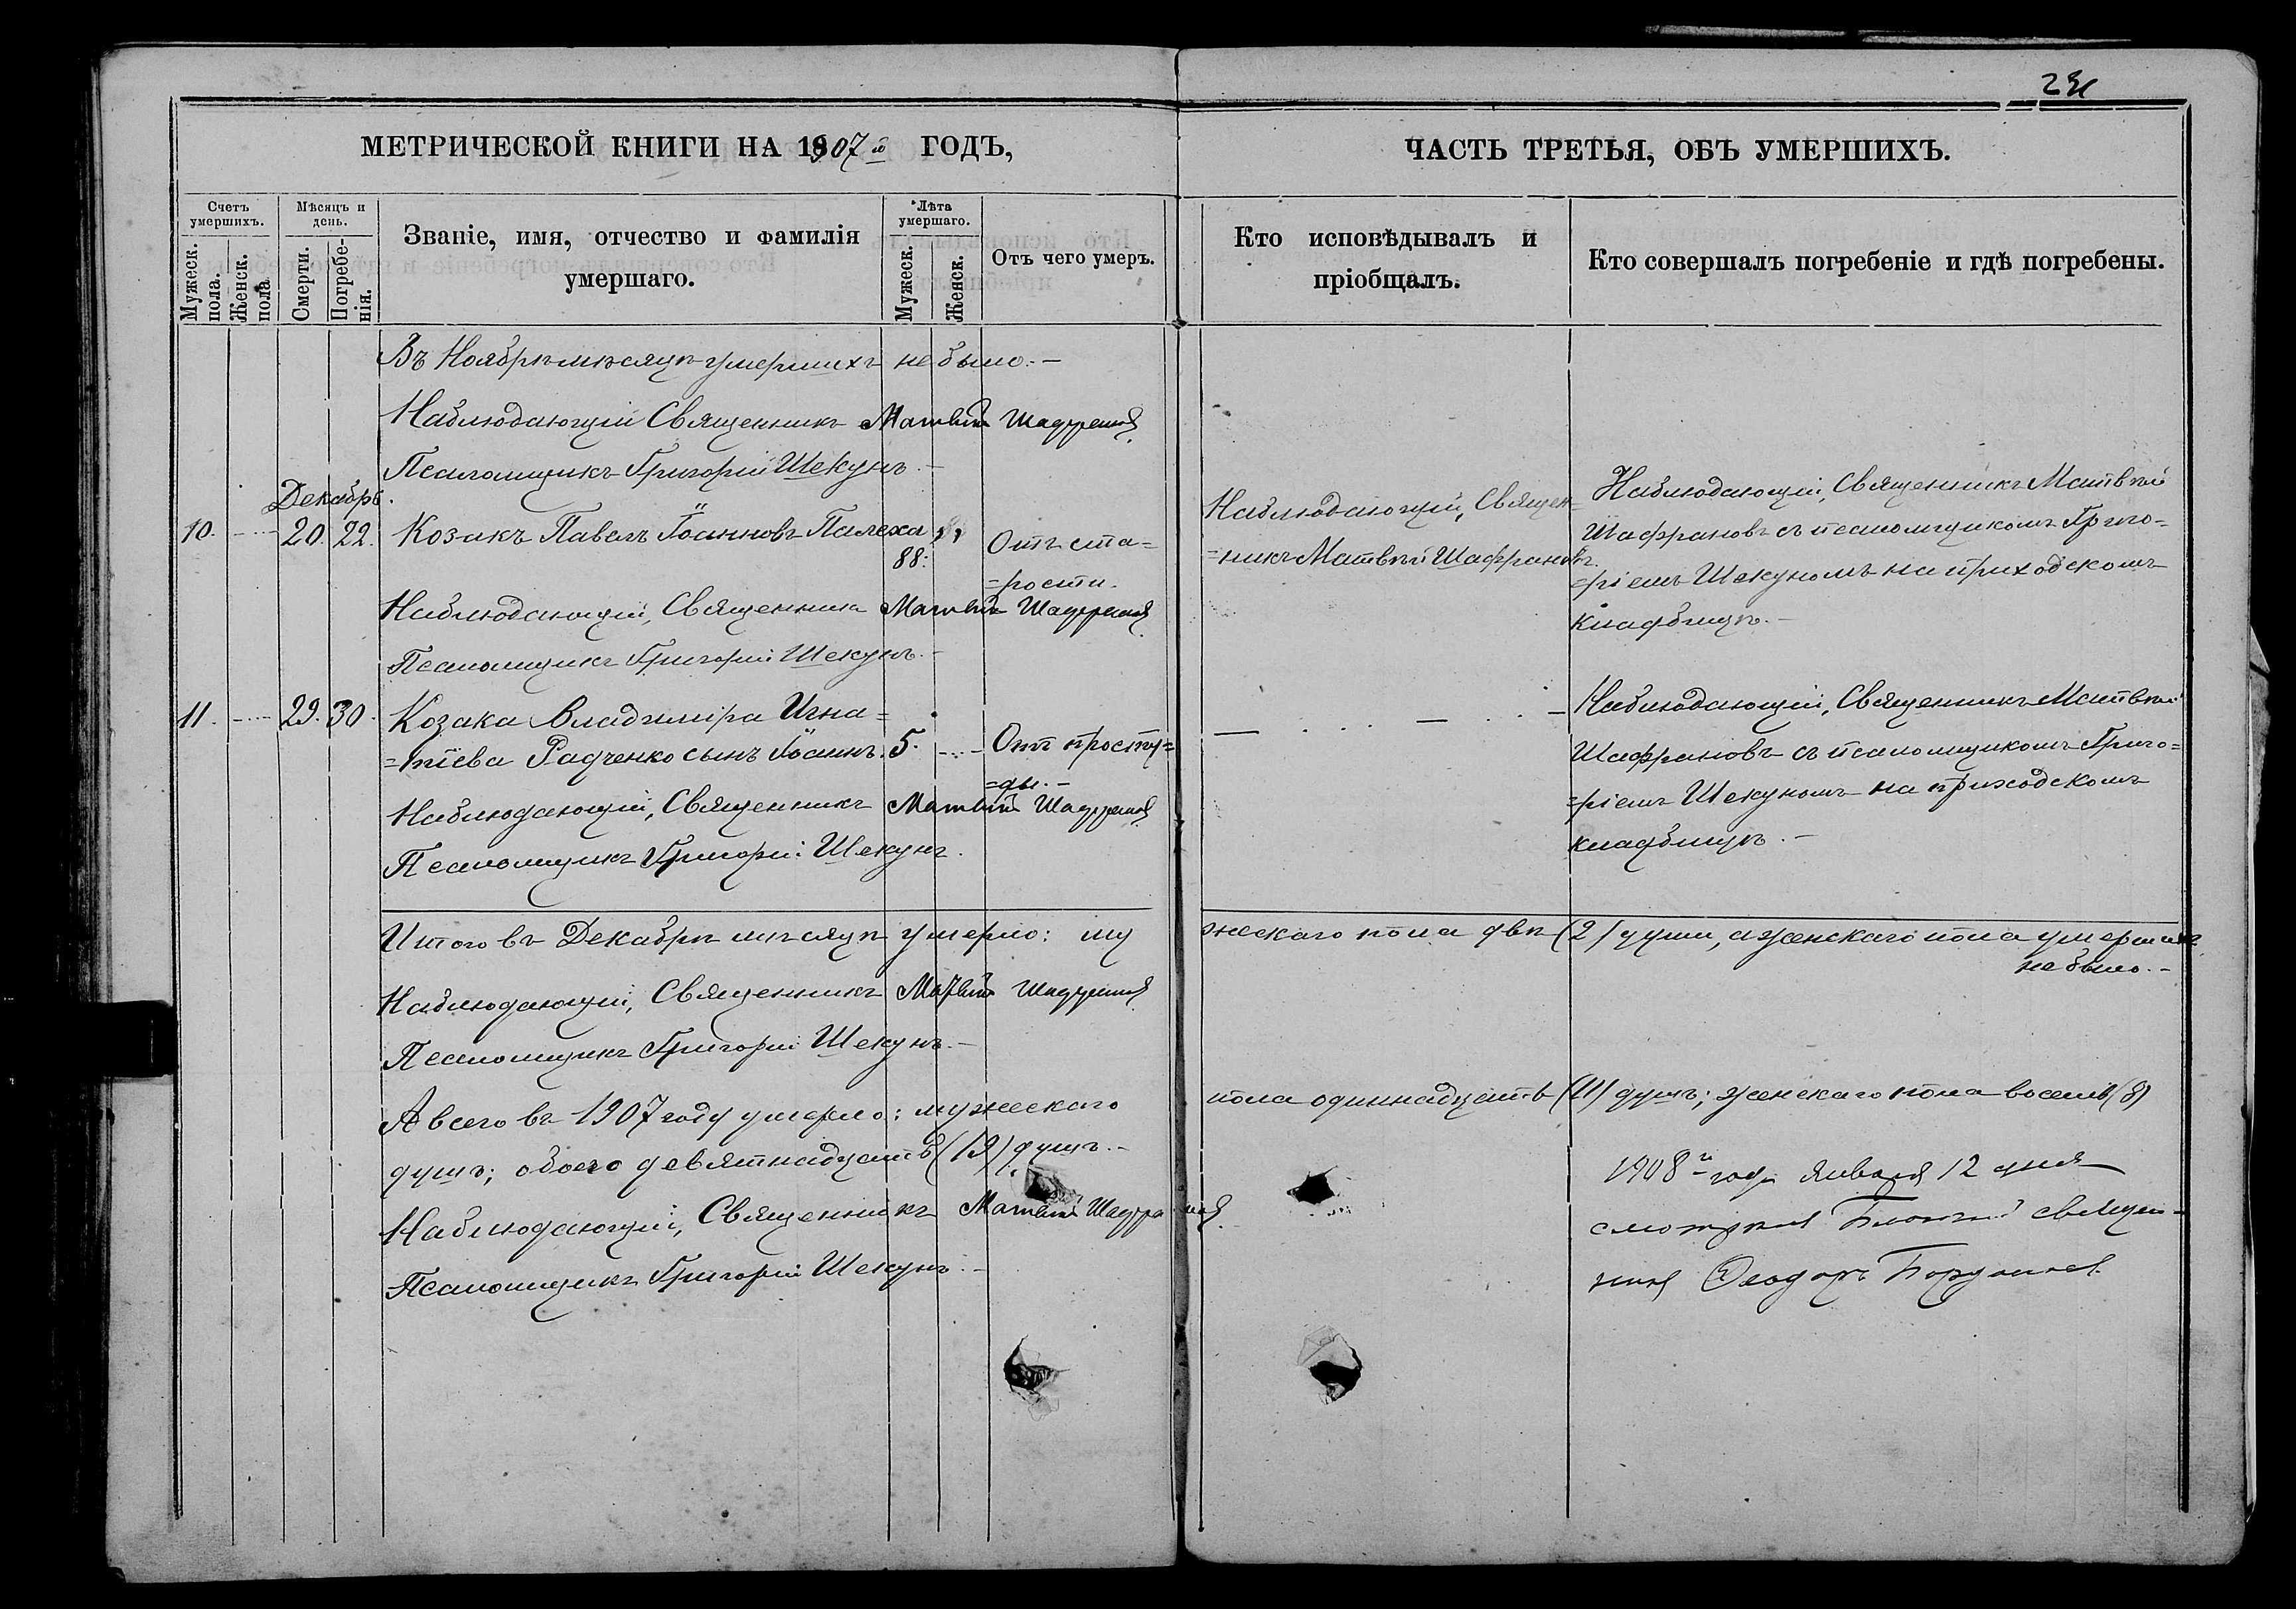 МЕТРИЧЕСКОЙ КНИГИ НА 1907й ГОДЪ,
Счетъ умершихъ.
Мужеск. пола.
Женск. пола.
Мѣсяцъ и день.
Смерти.
Погребенія.
Званіе, имя, отчество и фамилія
умершаго.
Лѣта умершаго.
Мужеск.
Женск.
Отъ чего умеръ.
Въ Ноябрѣ мѣсяцѣ умершихъ не было.–
Наблюдающій Священникъ Матвѣй Шафрановъ
Псаломщикъ Григорій Шекунъ.–
Декабрь.
10. 20. 22. Козакъ Павелъ Іоанновъ Палеха
88. Отъ ста=
=рости.
Наблюдающій, Священникъ Матвѣй Шафрановъ
Псаломщикъ Григорій Шекунъ.–
11. 29. 30. Козака Владиміра Игна=
=тіева Радченко сынъ Іоаннъ. 5. Отъ просту=
=ды.–
Наблюдающій, Священникъ Матвѣй Шафрановъ
Псаломщикъ Григорій Шекунъ.
Итого въ Декабрѣ мѣсяцѣ умерло: му
Наблюдающій, Священникъ Матвѣй Шафрановъ
Псаломщикъ Григорій Шекунъ.–
А всего въ 1907 году умерло: мужескаго
душъ; обоего девятнадцать (19) душъ.–
Наблюдающій, Священникъ Матвѣй Шафрановъ
Псаломщикъ Григорій Шекунъ.–
ЧАСТЬ ТРЕТЬЯ, ОБЪ УМЕРШИХЪ.
Кто исповѣдывалъ и
пріобщалъ.
Кто совершалъ погребеніе и гдѣ погребены.
Наблюдающій, Священ=
=никъ Матвѣй Шафрановъ.
Наблюдающій, Священникъ Матвѣй
Шафрановъ съ псаломщикомъ Григо=
=ріемъ Шекуномъ на приходскомъ
кладбищѣ.–
Наблюдающій, Священникъ Матвѣй
Шафрановъ съ псаломщикомъ Григо=
=ріемъ Шекуномъ на приходскомъ
кладбищѣ.–
жескаго пола двѣ (2) души, а женскаго пола умершихъ
не было.–
пола одиннадцать (11) душъ; женскаго пола восемь (8)
1908й года Января 12 дня
смотрѣлъ священ-
никъ Ѳеодоръ